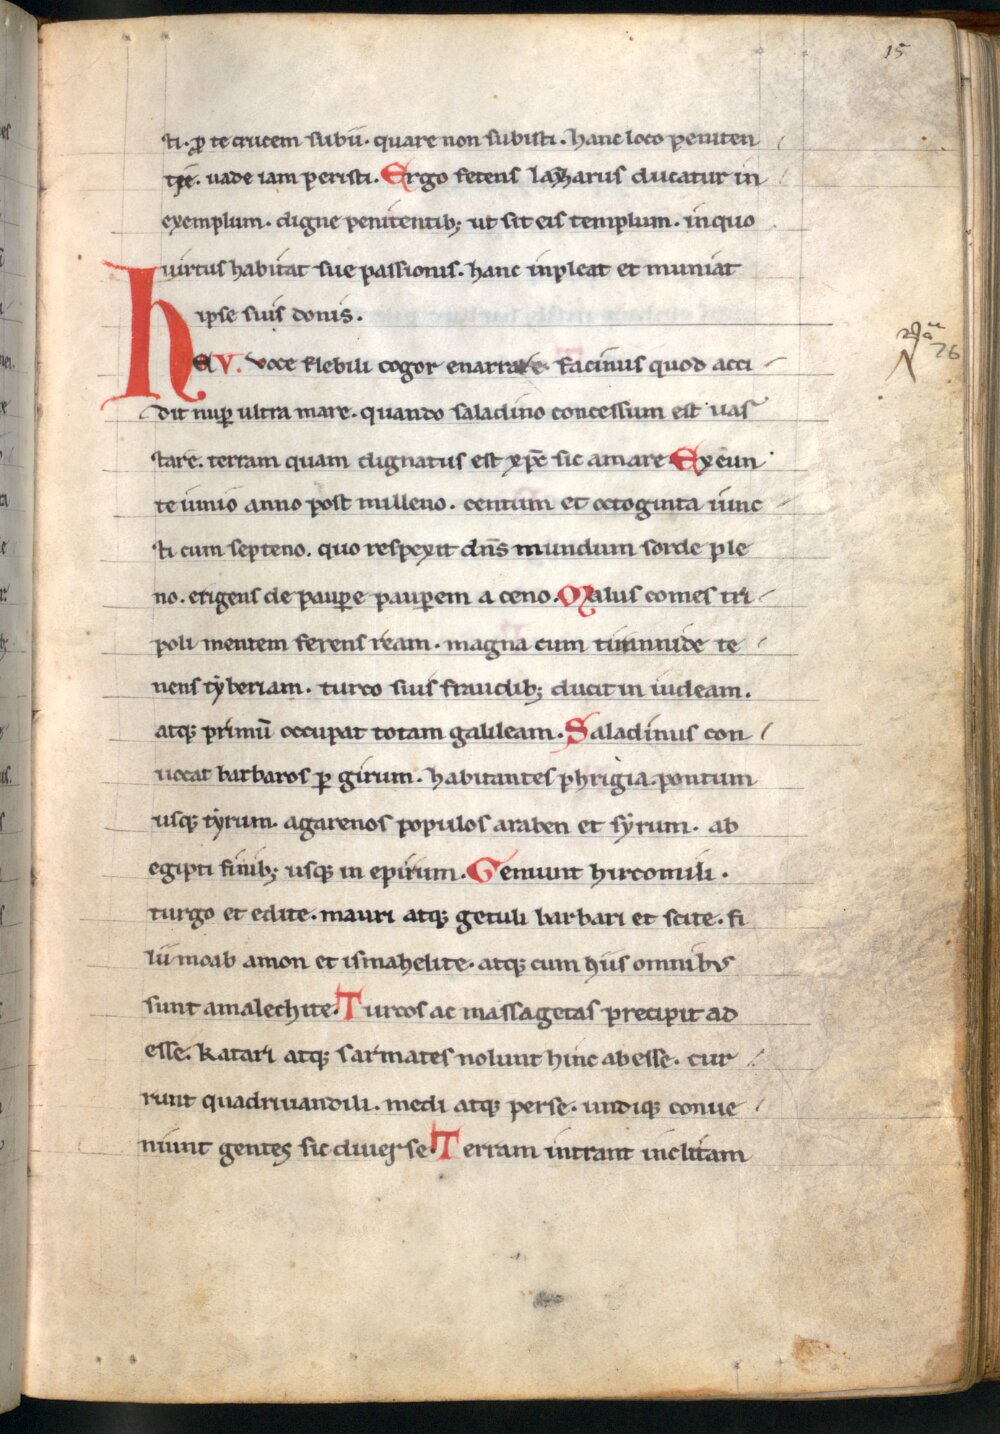 15
sti. ꝓ te crucem subii. quare non subisti. hanc loco peniten
tie. uade iam peristi. Ergo fetens lazarus ducatur in
exemplum. digne penitentib; ut sit eis templum. in quo
uirtus habitat sue passionis. hanc inpleat et muniat
ipse suis donis.
HEV. voce flebili cogor enarrare. facinus quod acci
dit nuꝑ ultra mare. quando saladino concessum est uas
tare. terram quam dignatus est xp̄c sic amare Exeun
te iunio anno post milleno. centum et octoginta iunc
ti cum septeno. quo respexit dn̄s mundum sorde ple
no. erigens de pauꝑe pauꝑem a ceno. Malus comes tri
poli mentem ferens ream. magna cum timmide te
nens tyberiam. turco suis fraudib; ducit in iudeam.
atq; primū occupat totam galileam. Saladinus con
uocat barbaros ꝑ girum. habitantes phrigia. pontum
usq; tyrum. agarenos populos araben et syrum. ab
egipti finib; usq; in epirum. Gemunt hircomili.
turgo et edite. mauri atq; getuli barbari et scite. fi
lii moab amon et ismahelite. atq; cum hiis omnibus
sunt amalechite. Turcos ac massagetas precipit ad
esse. katari atq; sarmates nolunt hinc abesse. cur
runt quadriuandili. medi atq; perse. undiq; conue
niunt gentes sic diuerse. Terram intrant inclitam
76